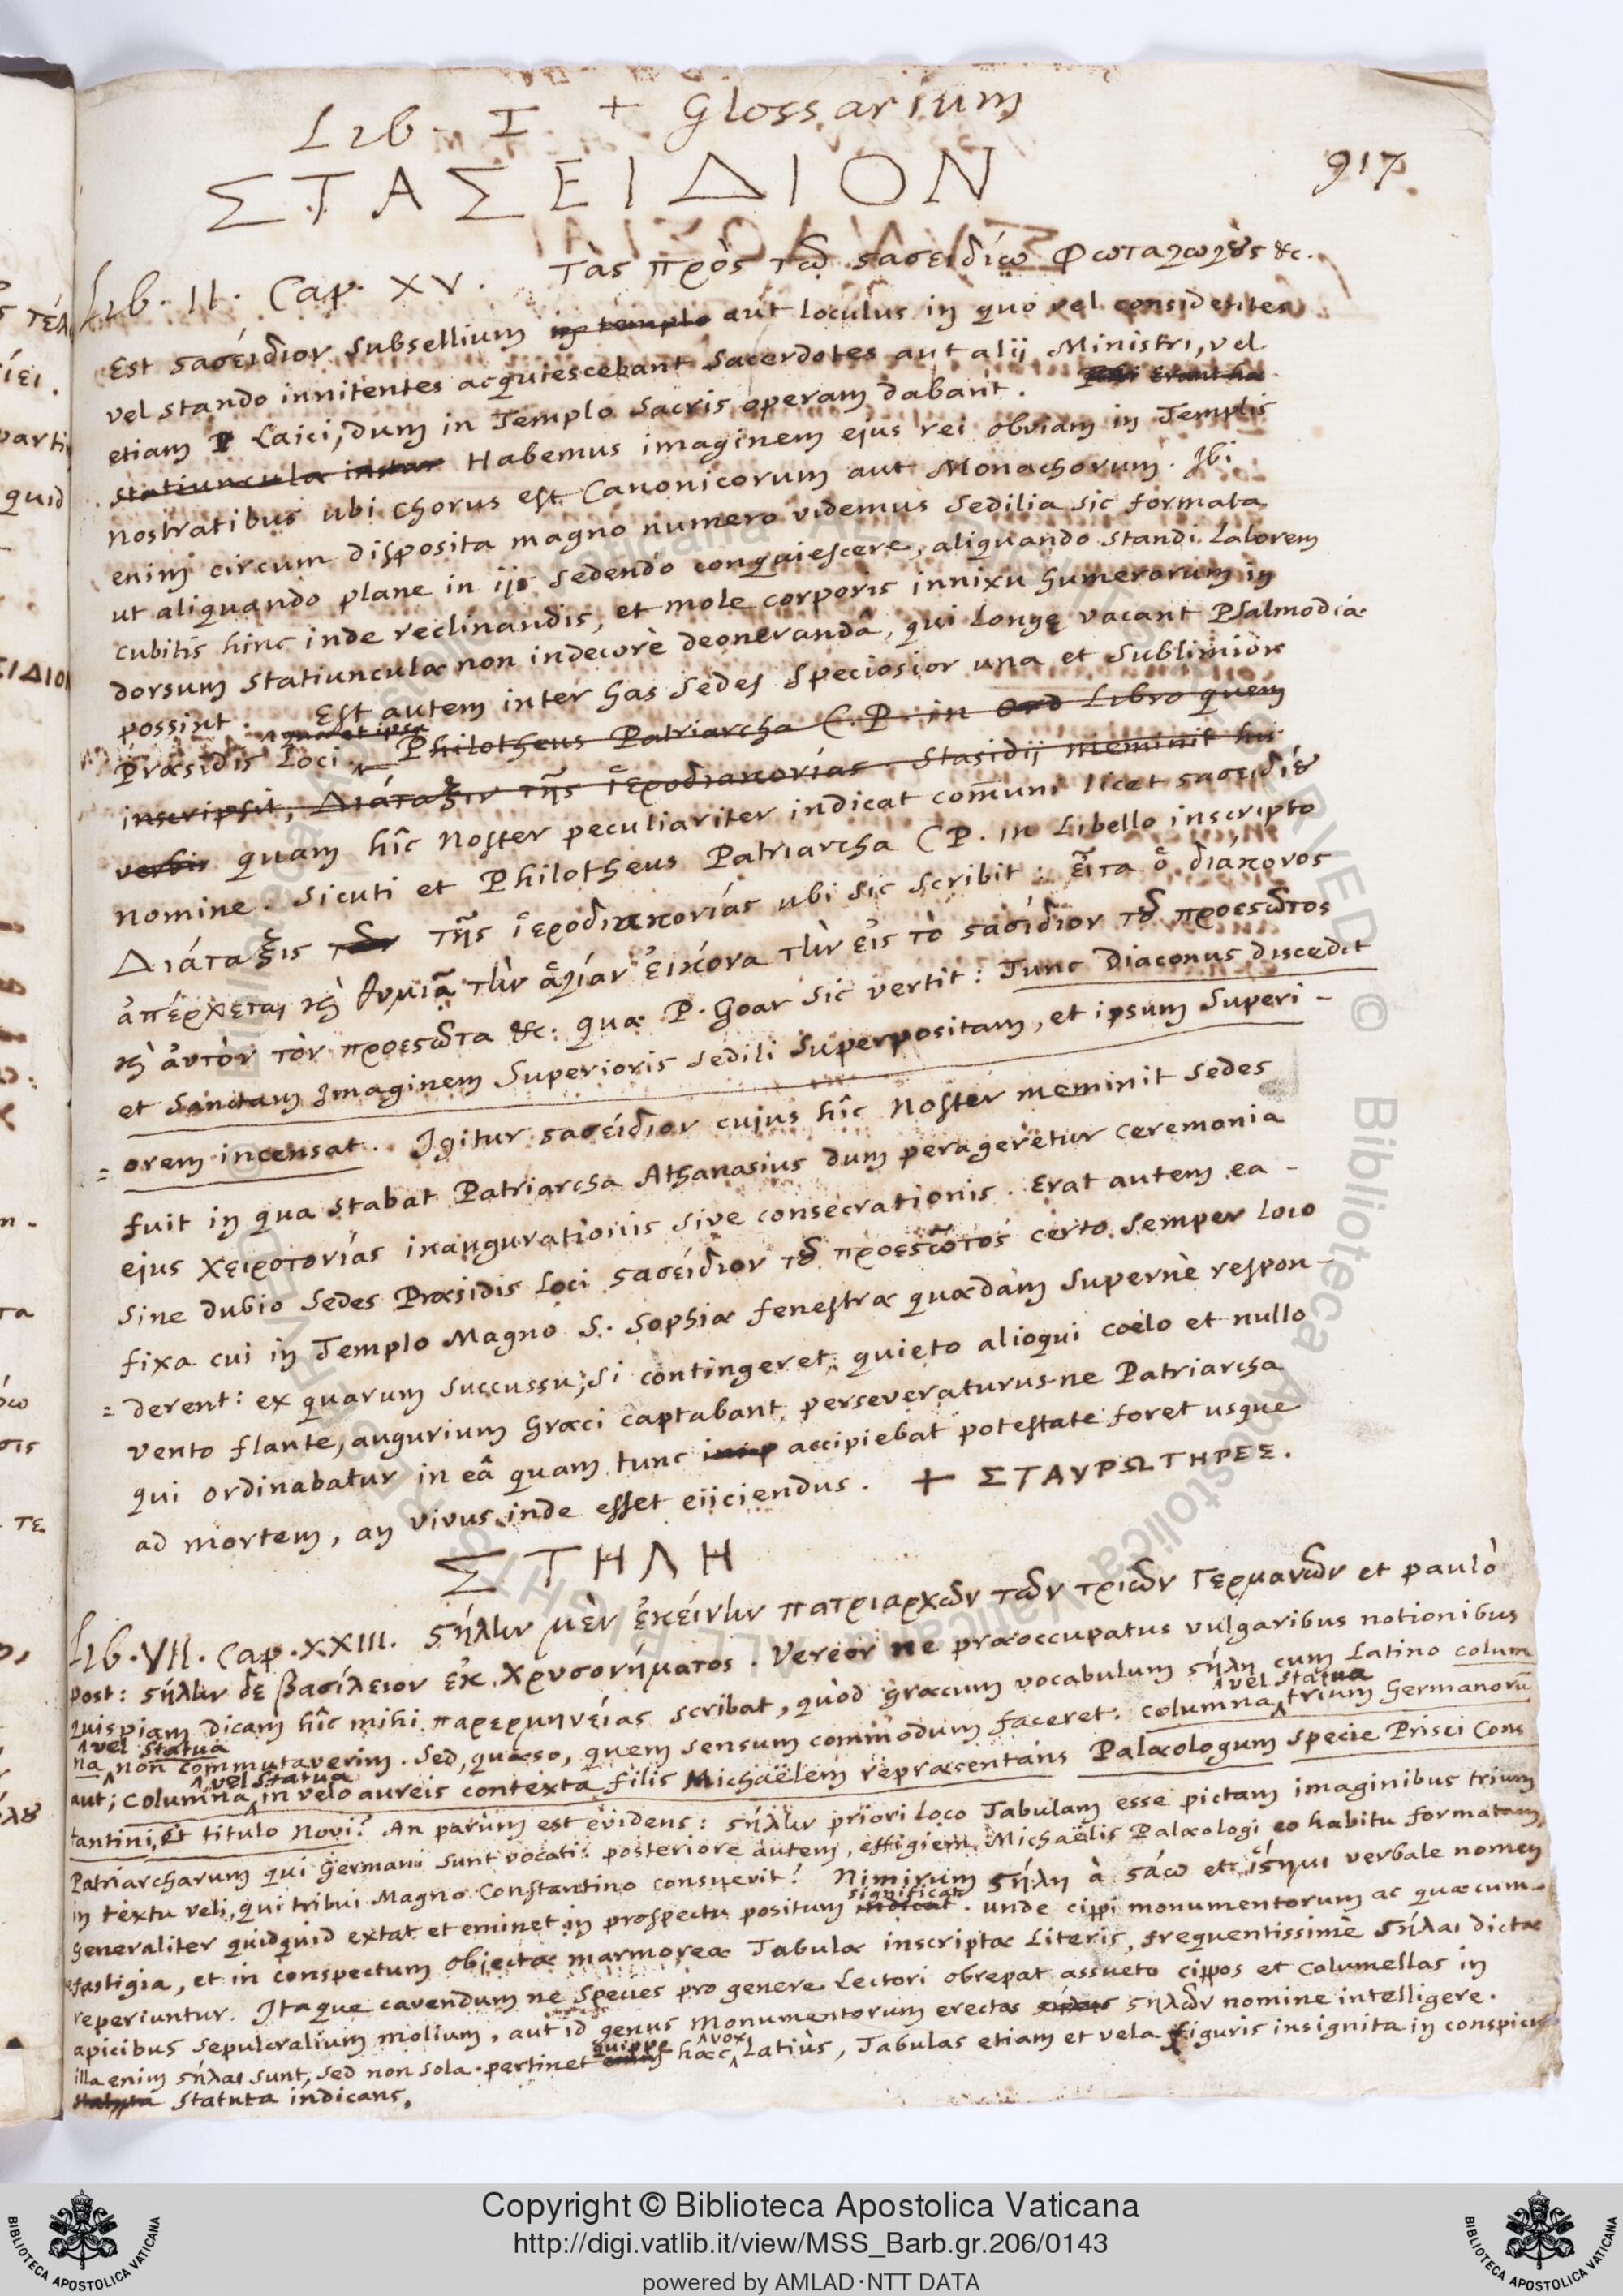 Lib. I + Glossarium
917.
ΣΤΑΣΕΙΔΙΟΝ
Lib. II. Cap. XV. Τὰς πρὸς τῷ ϛασειδίω Φωταγωγοὺς &c.
Est ϛασείδιον subsellium in templo aut loculus in quo vel considentes
vel stando innitentes acquiescebant Sacerdotes aut alij Ministri, vel
etiam Laici, dum in Templo Sacris operam dabant.
statiuncula instar Habemus imaginem ejus rei obviam in Templis
nostratibus ubi chorus est Canonicorum aut Monachorum. Ibi
enim circum disposita magno numero videmus Sedilia sic formata
ut aliquando plane in ijs sedendo conquiescere, aliquando standi laborem
cubitis hinc inde reclinandis, et mole corporis innixu humerorum in
dorsum statiunculæ non indecorè deonerandâ, qui longę vacant Psalmodiæ
possint. Est autem inter has sedes speciosior una et sublimior
Præsidis Loci Philotheus Patriarcha C.P. in Libro quem
inscripsit, Διάταξιν τῆς ἱεροδιακονίας. Stasidij meminit his
verbis quam hîc Noster peculiariter indicat com̄uni licet ϛασειδίȣ
nomine. Sicuti et Philotheus Patriarcha CP. in Libello inscripto
Διάταξις τῆς ἱεροδιακονίας ubi sic scribit: εἶτα ὁ διάκονος
ἀπέρχεται κὴ θυμιᾷ τὴν ἁγίαν εἰκόνα τὴν εἰς τὸ ϛασίδιον τȣ͂ προεϛῶτος
κὴ αὐτὸν τὸν προεϛῶτα &c: quæ P. Goar sic vertit: Tunc Diaconus discedit
et Sanctam Imaginem Superioris sedili superpositam, et ipsum Superi-
= orem incensat. Igitur ϛασείδιον cujus hîc Noster meminit sedes
fuit in qua stabat Patriarcha Athanasius dum perageretur ceremonia
ejus χειροτονίας inaugurationis sive consecrationis. Erat autem ea-
sine dubio Sedes Præsidis Loci ϛασείδιον τȣ͂ προεϛῶτος certo semper loco
fixa cui in Templo Magno S. Sophiæ fenestræ quædam supernè respon-
= derent: ex quarum succussu, si contingeret, quieto alioqui coelo et nullo
vento flante, augurium Græci captabant, perseveraturus-ne Patriarcha
qui ordinabatur in eâ quam tunc accipiebat potestate foret usque
ad mortem, an vivus inde esset eijciendus. + ΣΤΑΥΡΩΤΗΡΕΣ.
ΣΤΗΛΗ
Lib. VII. Cap. XXIII. ϛήλην μὲν ἐκείνην πατριαρχῶν τῶν τριῶν Γερμανῶν et paulò
post: ϛήλην δὲ βασίλειον ἐκ χρυσονήματος. Vereor ne præoccupatus vulgaribus notionibus
quispiam dicam hîc mihi παρερμηνείας scribat, quòd græcum vocabulum ϛήλη cum Latino colum
vel statua
na vel statua non commutaverim. Sed, quæso, quem sensum commodum faceret: Columna trium Germanorū
aut; Columna vel statua in velo aureis contexta filis Michaëlem repræsentans Palæologum specie Prisci Cons
tantini, et titulo Novi? An parùm est evidens: ϛήλην priori loco Tabulam esse pictam imaginibus trium
Patriarcharum qui Germani sunt vocati: posteriore autem, effigiem Michaëlis Palæologi eo habitu formatam,
in textu veli, qui tribui Magno Constantino consuevit? Nimirum ϛήλη à ϛάω et ἵϛημι verbale nomen
generaliter quidquid extat et eminet in prospectu positum significat. unde cippi monumentorum ac quæcum-
fastigia, et in conspectum objectæ marmoreæ Tabulæ inscriptæ Literis, frequentissimè ϛῆλαι dictæ
reperiuntur. Itaque cavendum ne species pro genere Lectori obrepat assueto cippos et Columellas in
apicibus sepulcralium molium, aut id genus Monumentorum erectas ϛηλῶν nomine intelligere.
illa enim ϛῆλαι sunt, sed non sola. pertinet quippe hæc vox Latiùs, Tabulas etiam et vela figuris insignita in conspicuo
statuta indicans.
Copyright © Biblioteca Apostolica Vaticana
http://digi.vatlib.it/view/MSS_Barb.gr.206/0143
powered by AMLAD·NTT DATA